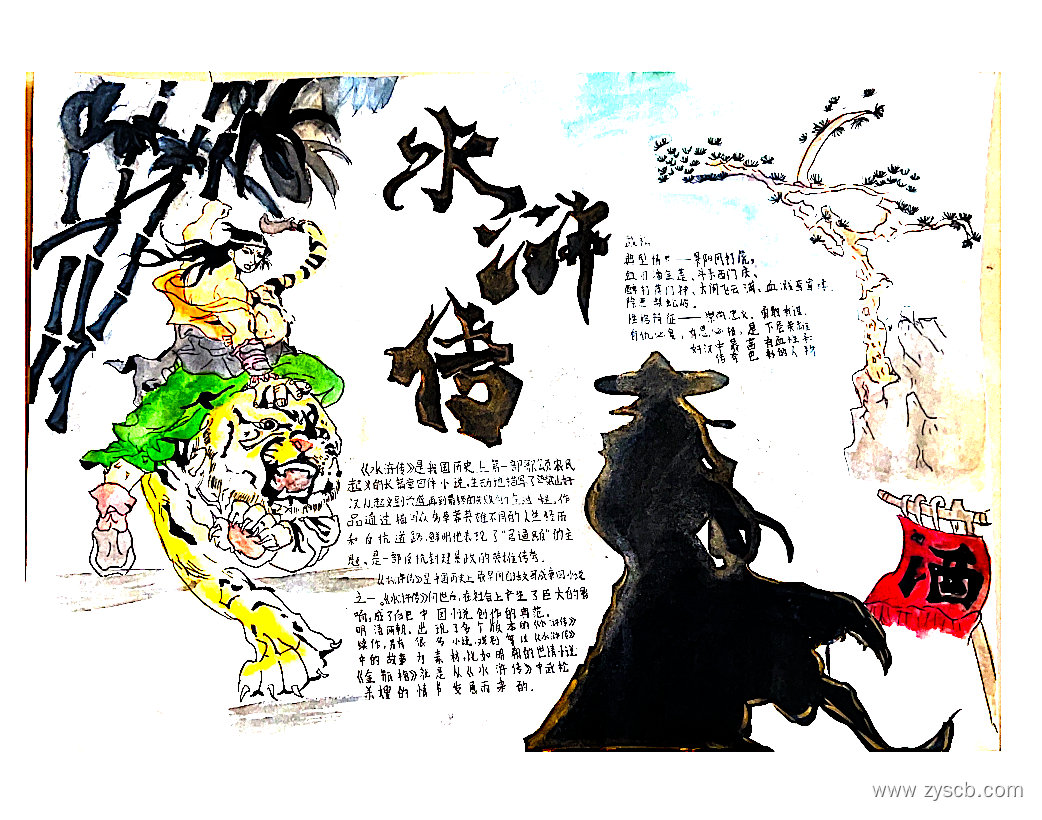 水浒传
武松
典型情节——景阳冈打虎、
血刃潘金莲、斗杀西门庆、
醉打蒋门神、大闹飞云浦、血溅鸳鸯楼、
除恶蜈蚣岭
性格特征——崇尚忠义、勇敢有谋、
有仇必复，有恩必报，是下层英雄
好汉中最富有血性和
传奇色彩的人物
《水浒传》是我国历史上第一部歌颂农民
起义的长篇章回体小说，生动地描写了梁山好
汉从起义到兴盛再到最终失败的全过程，作
品通过描写众多草莽英雄不同的人生经历
和反抗道路，鲜明地表现了“官逼民反”的主
题，是一部反抗封建暴政的英雄传奇。
《水浒传》是中国历史上最早用白话文写成章回小说
之一。《水浒传》问世后，在社会上产生了巨大的影
响，成了后世中国小说创作的典范。
明清两朝，出现了多个版本的《水浒传》
续作，另有很多小说、戏剧等以《水浒传》
中的故事为素材，比如明朝的世情小说
《金瓶梅》就是从《水浒传》中武松
杀嫂的情节发展而来的。
酒
www.zyscb.com